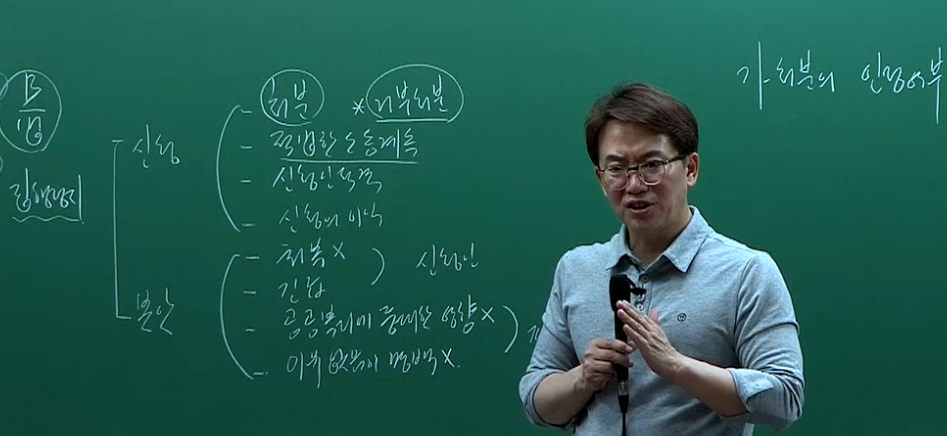 B
법
집행정지
신청
- 처분 * 거부처분
- 적법한 소송계속
- 신청인적격
- 신청의 이익
본안
- 회복X
- 긴급
신청인
- 공공복리에 중대한 영향X
- 이유 없음이 명백X.
가. 처분의 인정여부